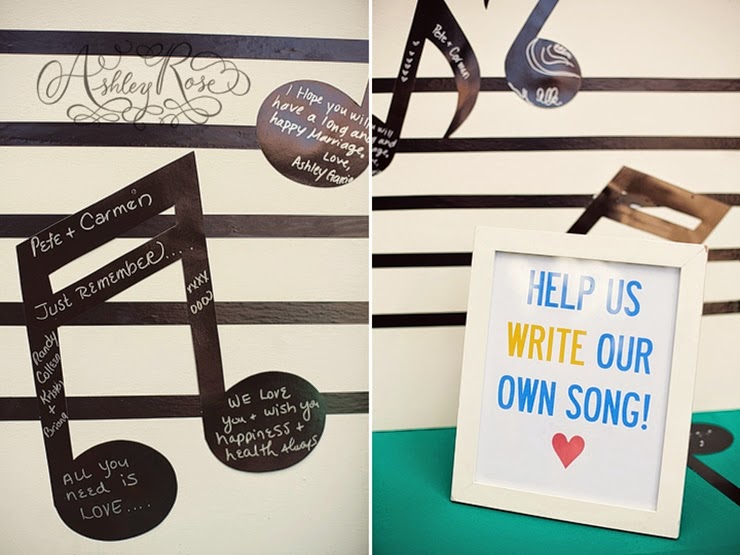 Ashley Rose
I Hope you will
have a long and
happy Marriage,
Love,
Pete + Carmen
Just Remember....
xxxx
oooo
Randy
Colleen
Kristi
+
Briana
All you
need is
LOVE....
WE LOVE
you + wish you
happiness +
health Always
Pete + Carmen
will
and
HELP US
WRITE OUR
OWN SONG!